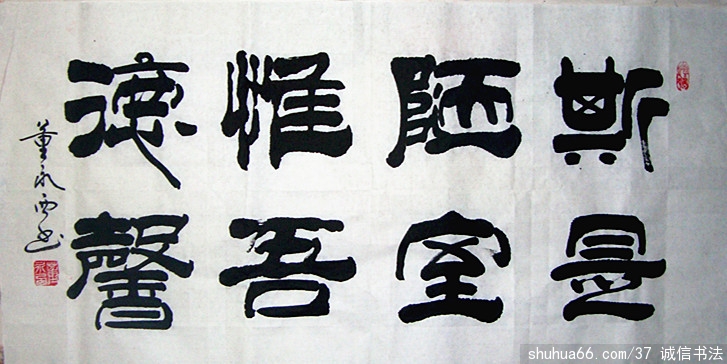 斯是
陋室
惟吾
德馨
董永西书
shuhua66.com/37 诚信书法